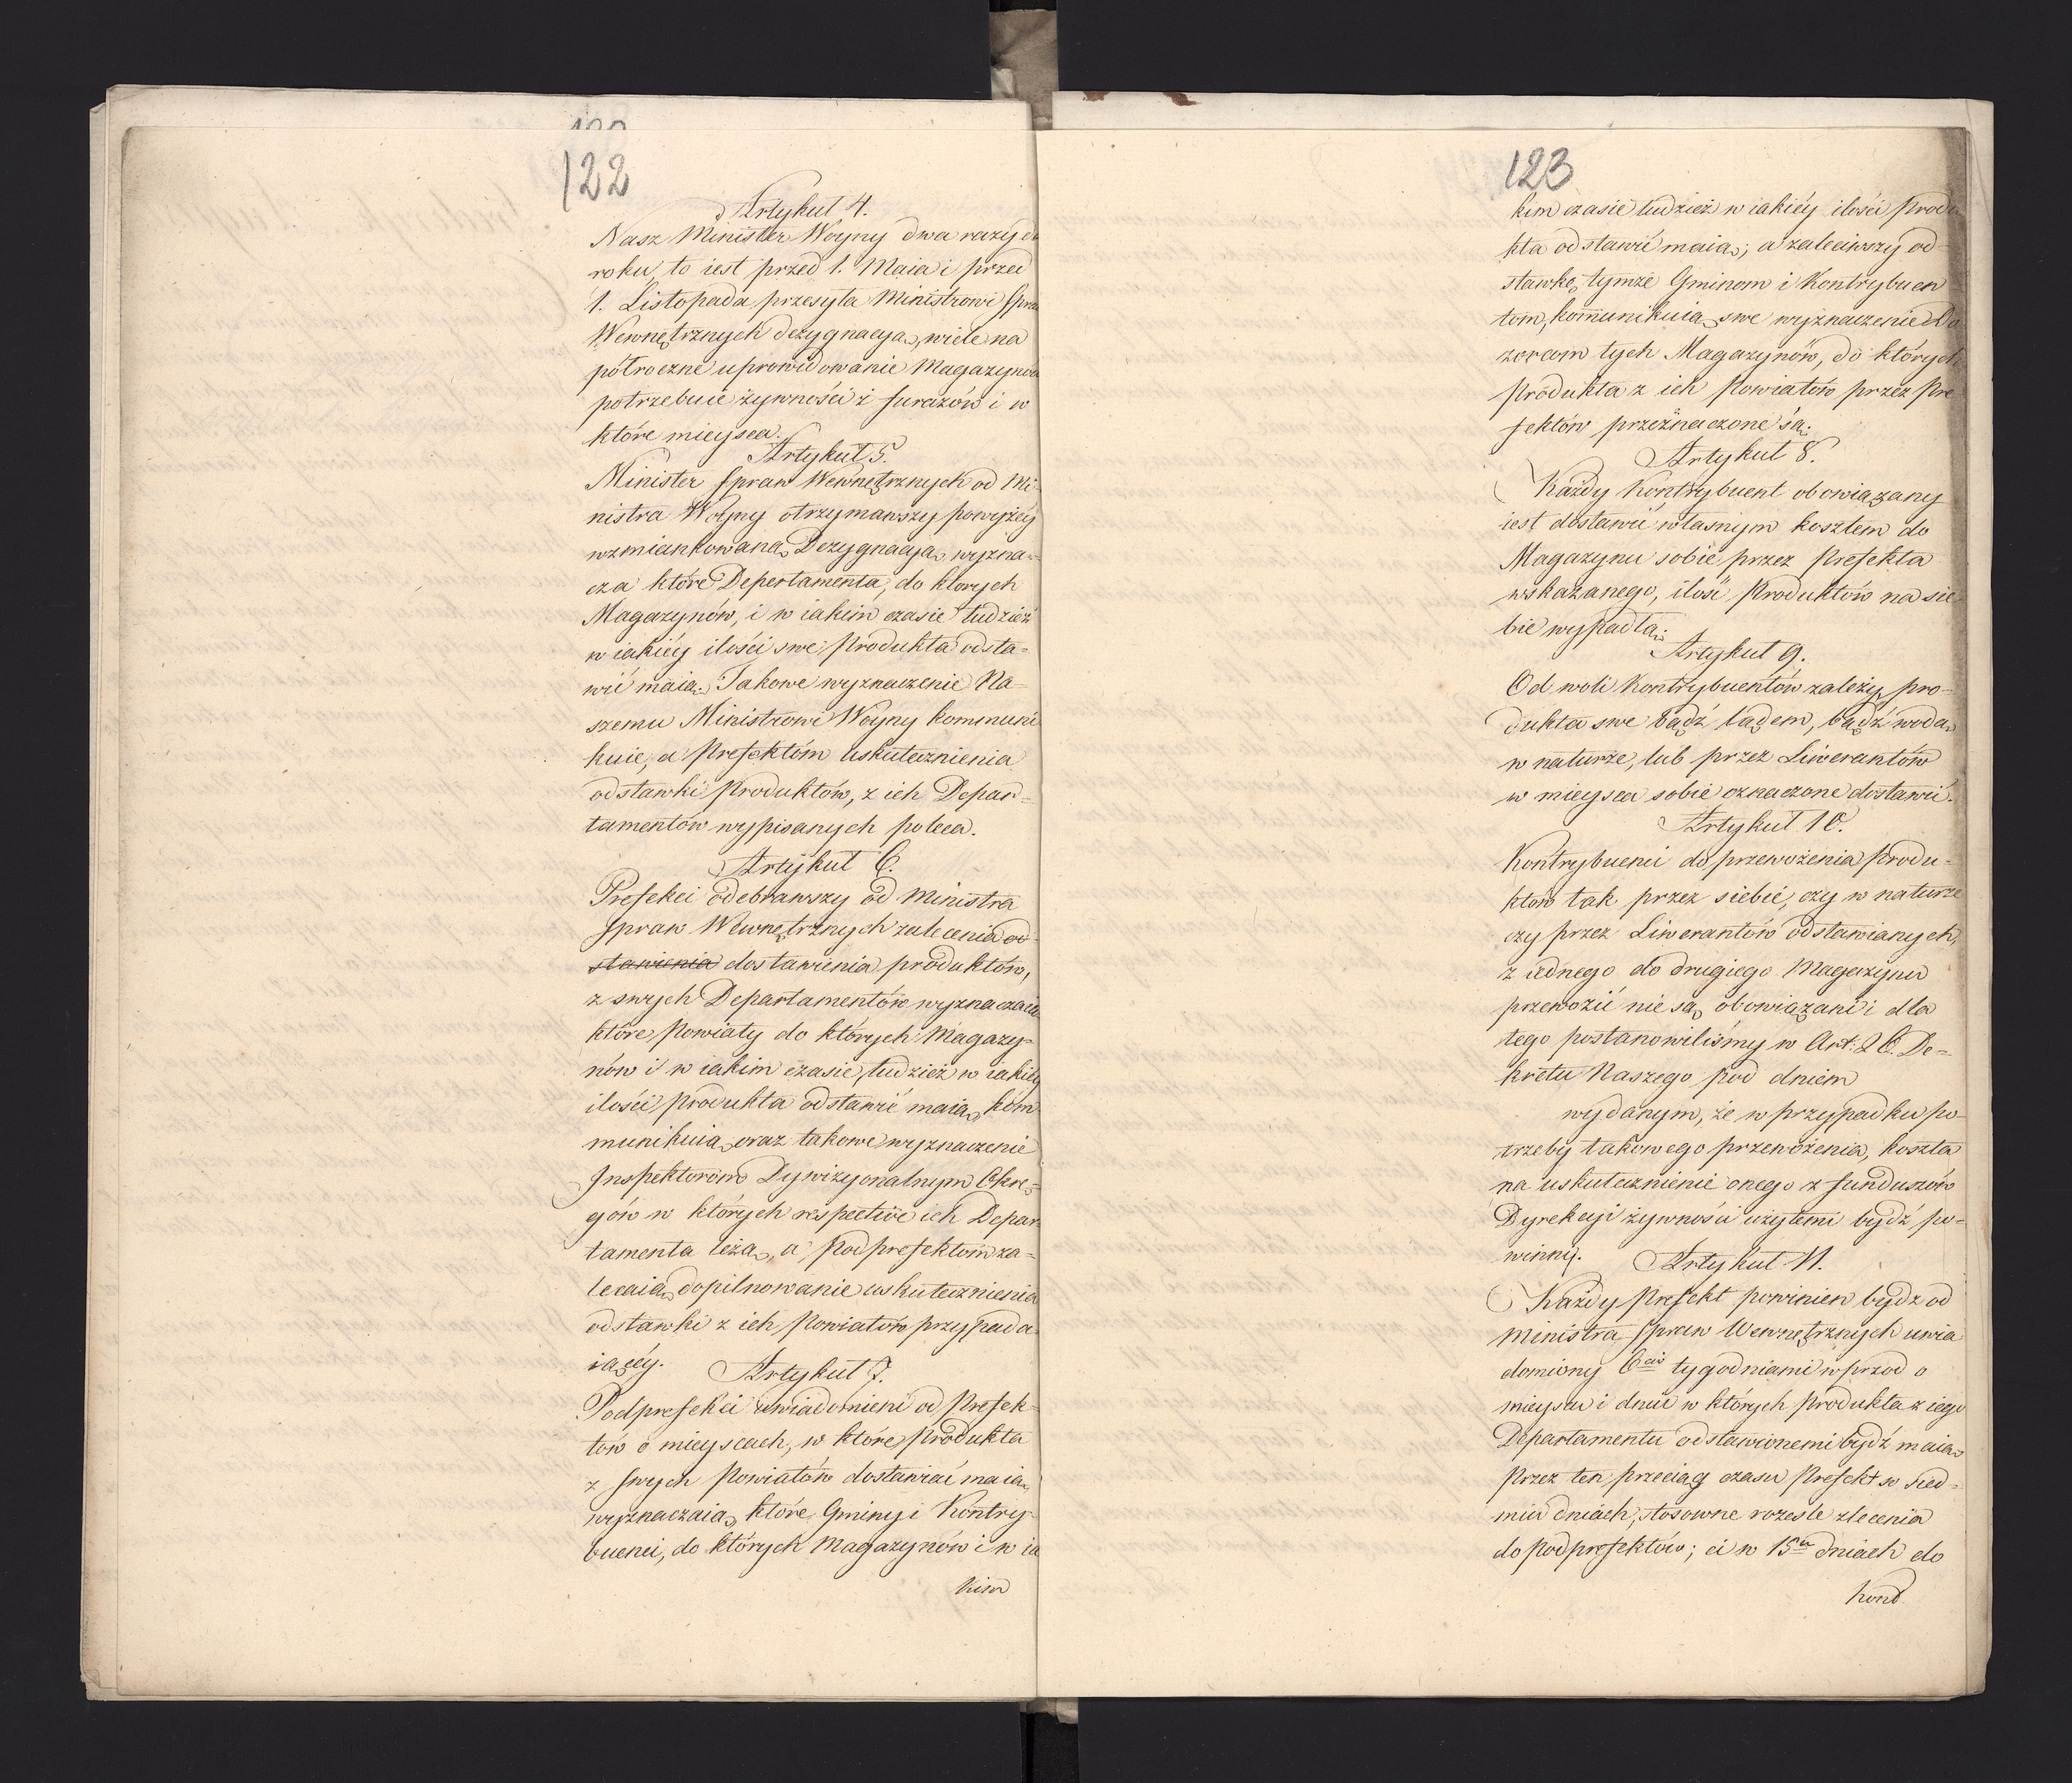 122
Artykuł 4.
Nasz Minister Woyny dwa razy do
roku, to iest przed 1. Maia i przed
1. Listopada przesyła Ministrowi Spraw
Wewnętrznych dezygnacyą, wiele na
półroczne uprowidowanie Magazynów
potrzebuie żywności i furażów i w
które mieysca.
Artykuł 5.
Minister Spraw Wewnętrznych od Mi-
nistra Woyny otrzymawszy powyżéy
wzmiankowaną Dezygnacyą wyzna-
cza które Departamenta, do których
Magazynów, i w iakim czasie tudzież
w iakiéy ilości swe produkta odsta-
wić maią. Takowe wyznaczenie Na-
szemu Ministrowi Woyny kommuni
kuie, a Prefektóm uskutecznienia
odstawki Produktów, z ich Depar-
tamentów wypisanych poleca.
Artykuł 6.
Prefekci odebrawszy od Ministra
Spraw Wewnętrznych zalecenia od-
stawienia dostawienia produktów,
z swych Departamentów wyznaczaią
które Powiaty do których Magazy-
nów i w iakim czasie, tudzież w iakiéy
ilości produkta odstawić maią, kom
munikuią oraz takowe wyznaczenie
Inspektorom Dywizyonalnym Okrę-
gów w których respective ich Depar
tamenta leżą, a Podprefektom za-
lecaią dopilnowanie uskutecznienia
odstawki z ich Powiatów przypada
iącéy.
Artykuł 7.
Podprefekci uwiadomieni od Prefek-
tów o mieyscach, w które Produkta
z swych Powiatów dostawiać maią,
wyznaczaią, które Gminy i Kontry-
buenci, do których Magazynów i w ia
kim
123
kim czasie tudzież w iakiéy ilości Produ
kta odstawić maią; a zaleciwszy od-
stawkę tymże Gminom i Kontrybuen
tom, kommunikuią swe wyznaczenie Do
zorcom tych Magazynów, do których
Produkta z ich Powiatów przez Pre
fektów przeznaczone są.
Artykuł 8.
Każdy Kontrybuent obowiązany
iest dostawić własnym kosztem do
Magazynu sobie przez Prefekta
wskazanego, ilość Produktów na sie
bie wypadłą.
Artykuł 9.
Od woli Kontrybuentów zależy pro-
dukta swe bądź lądem, bądź wodą
w naturze, lub przez Liwerantów
w mieysca sobie oznaczone dostawić.
Artykuł 10.
Kontrybuenci do przewożenia Produ-
któw tak przez siebie, czy w naturze
czy przez Liwerantów odstawianych,
z iednego do drugiego Magazynu
przewozić nie są obowiązani i dla
tego postanowiliśmy w Art: 26. De-
kretu Naszego pod dniem
wydanym, że w przypadku po-
trzeby takowego przewożenia, koszta
na uskutecznienie onego z funduszów
Dyrekcyi żywności użytemi bydź po-
winny.
Artykuł 11.
Każdy Prefekt powinien bydz od
Ministra Spraw Wewnętrznych uwia
domiony 6cią tygodniami wprzod o
mieyscu i dniu w których Produkta z iego
Departamentu odstawionemi bydź maią
Przez ten przeciąg czasu Prefekt w sied-
miu dniach, stosowne roześle zlecenia
do Podprefektów; ci w 15tu dniach do
kond